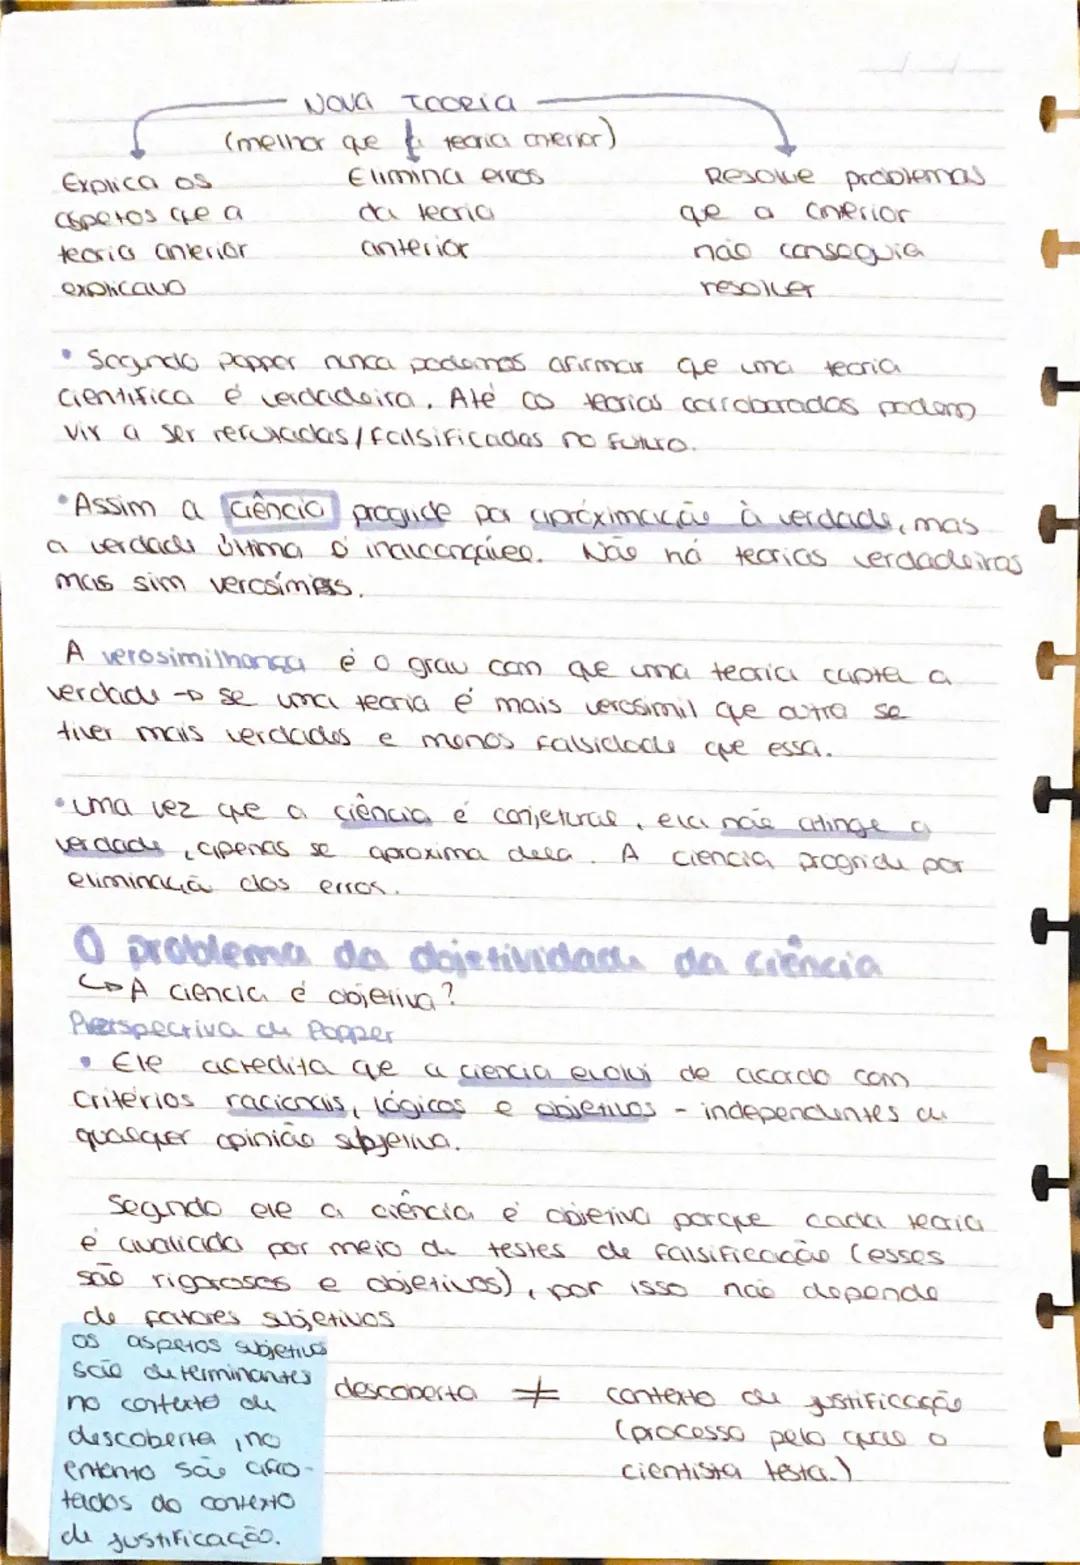 Nova Teoria
(melhor que a teoria anterior)
Explica os
aspetos que a
teoria anterior
explicava
Elimina erros
da teoria
anterior
Resolve problemas
que a anterior
não conseguia
resolver
• Segundo Popper nunca podemos afirmar que uma teoria
científica é verdadeira. Até as teorias corroboradas podem
vir a ser refutadas/falsificadas no futuro.
• Assim a ciência progride por aproximação à verdade, mas
a verdade última é inalcançável. Não há teorias verdadeiras
mas sim verosímeis.
A verosimilhança é o grau com que uma teoria capta a
verdade → se uma teoria é mais verosímil que outra se
tiver mais verdades e menos falsidade que essa.
• uma vez que a ciência é conjetural, ela não atinge a
verdade, apenas se aproxima dela. A ciencia progride por
eliminação dos erros.
O problema da objetividade da ciência
↳ A ciencia é objetiva?
Perspectiva de Popper
• Ele acredita que a ciencia evolui de acordo com
critérios racionais, lógicos e objetivos - independentes de
qualquer opinião subjetiva.
Segundo ele a ciência é objetiva porque cada teoria
é avaliada por meio de testes de falsificação (esses
são rigorosos e objetivos), por isso não depende
de fatores subjetivos
os aspetos subjetivos
são determinantes
no contexto de
descoberta, no
entanto são afas-
tados do contexto
de justificação.
descoberta ≠ contexto de justificação
(processo pelo qual o
cientista testa.)